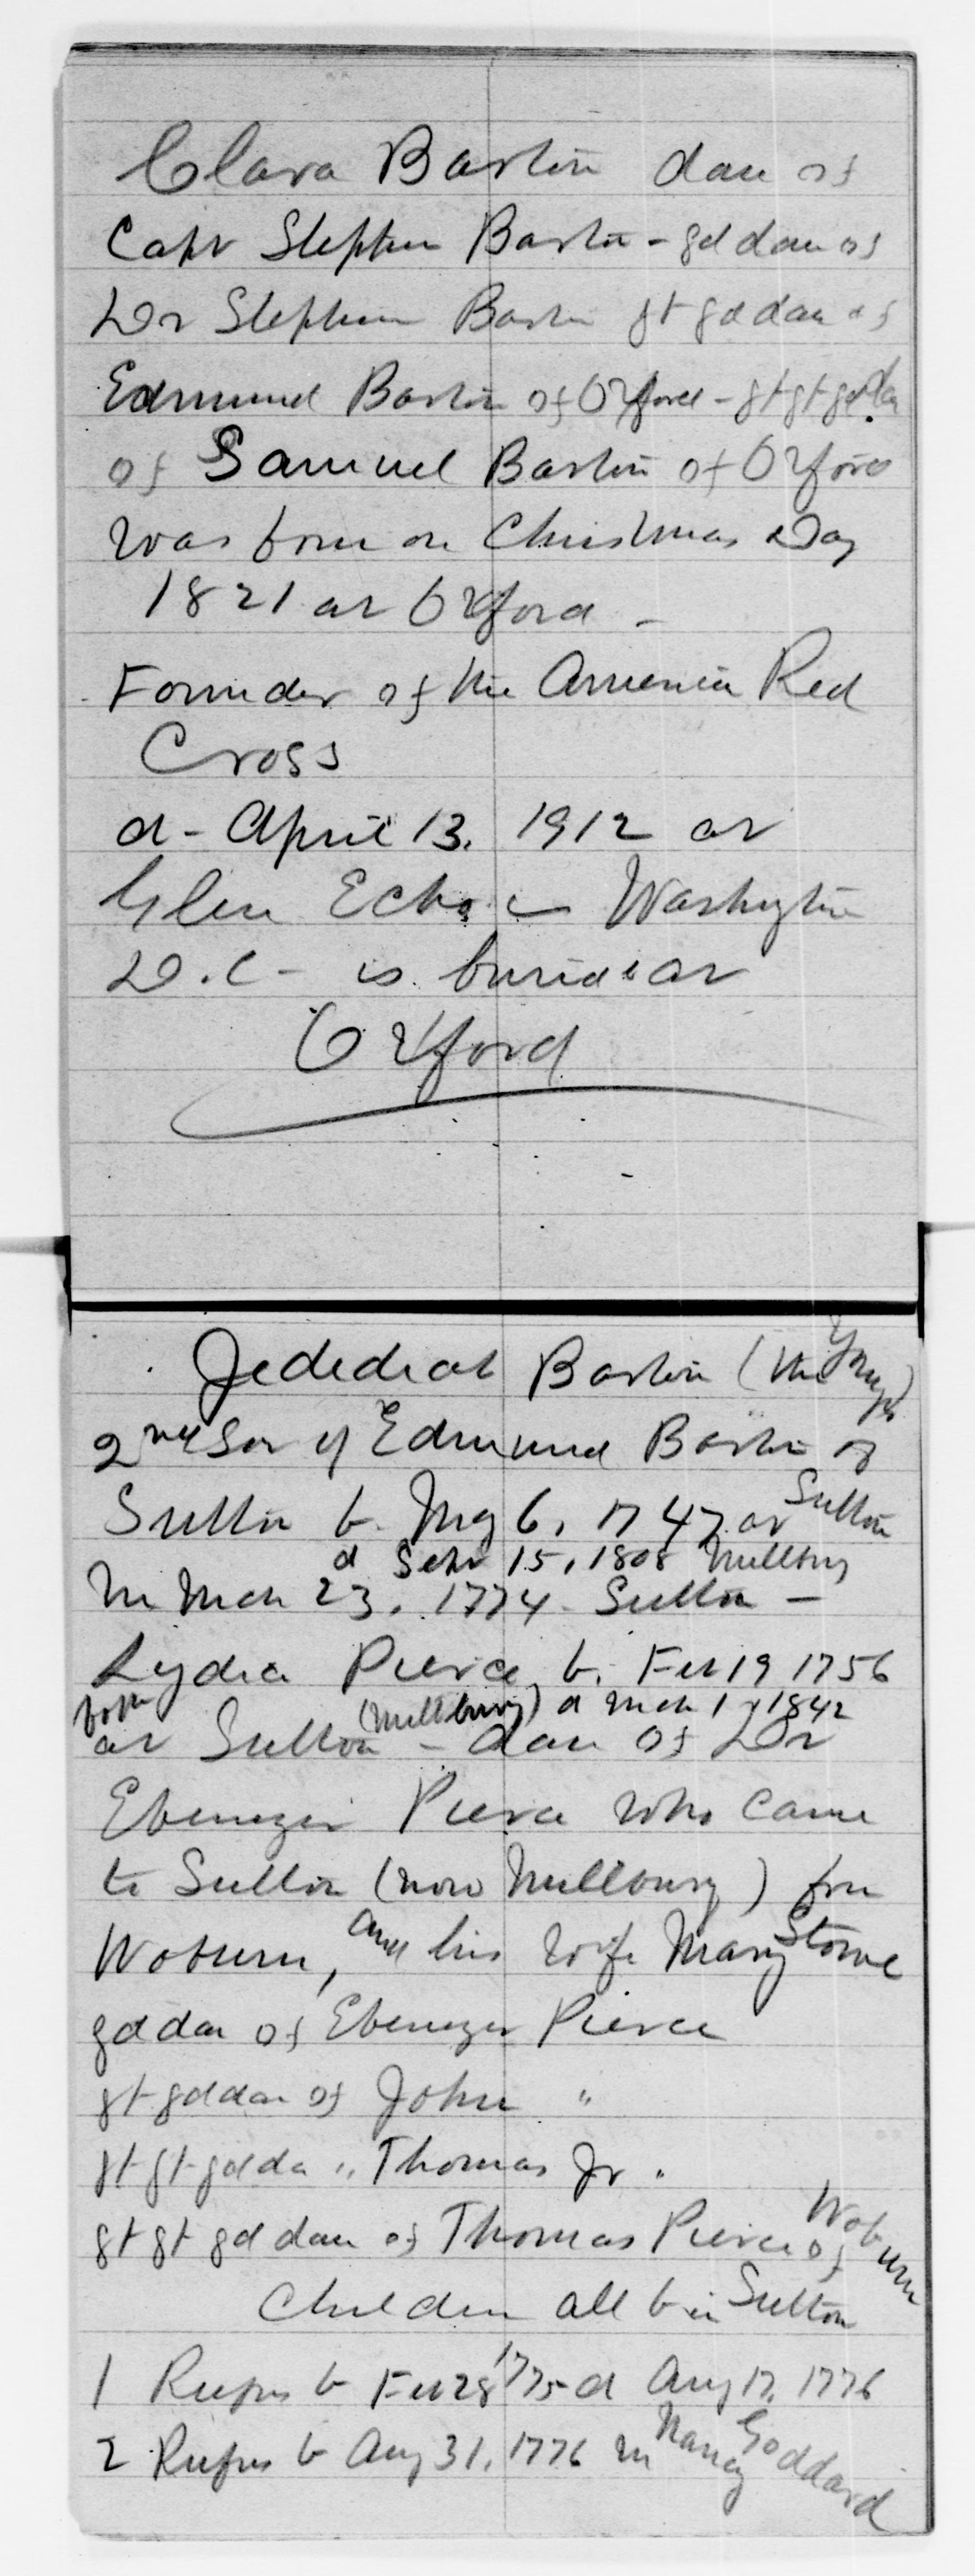 Clara Barton dau of
Capt Stephen Barton - gd dau of
Dr Stephen Barton gt gd dau of
Edmund Barton of Oxford - gt gt gd dau
of Samuel Barton of Oxford
was born on Christmas Day
1821 at Oxford -
Founder of the American Red
Cross
d - April 13, 1912 at
Glen Echo Washington
D.C - is buried at
Oxford
Jedediah Barton (the Younger)
2nd Son of Edmund Barton of
Sutton b. 6, 1747 at Sutton
d Sept 15, 1808 Millbury
m Mch 23, 1774 - Sutton -
Lydia Pierce b. Feb 19 1756
both (Millbury) d Mch 1 1842
at Sutton - dau of Dr
Ebenezer Pierce who came
to Sutton (now Millbury) from
Woburn, and his wife Mary Stowe
gd dau of Ebenezer Pierce
gt gd dau of John "
gt gt gd da " Thomas Jr "
gt gt gd dau of Thomas Pierce of Woburn
Children all b in Sutton
1 Rufus b Feb 28 1775 d Aug 17, 1776
2 Rufus b Aug 31, 1776 m Nancy Goddard